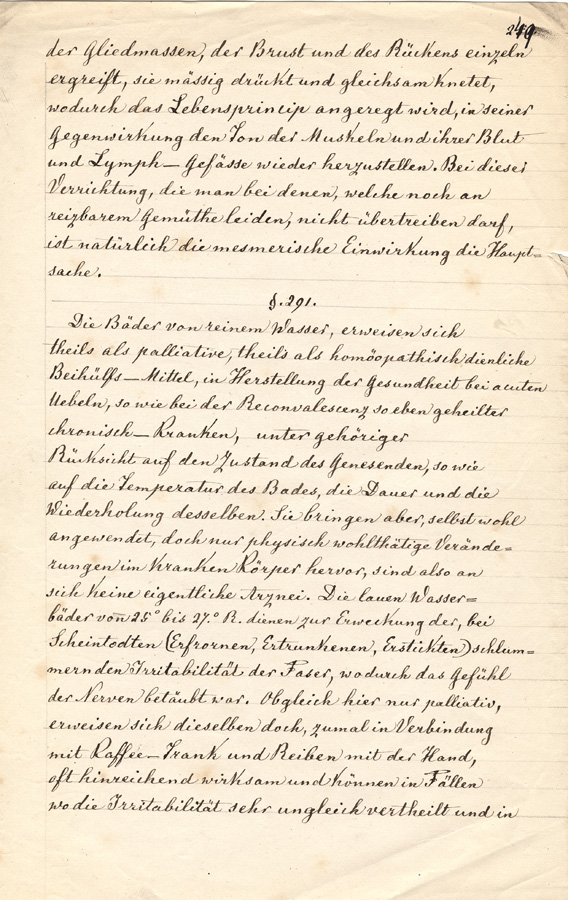 249
der Gliedmassen, der Brust und des Rückens einzeln
ergreift, sie mässig drückt und gleichsam knetet,
wodurch das Lebensprincip angeregt wird, in seiner
Gegenwirkung den Ton der Muskeln und ihrer Blut
und Lymph-Gefässe wieder herzustellen. Bei dieser
Verrichtung, die man bei denen, welche noch an
reizbarem Gemüthe leiden, nicht übertreiben darf,
ist natürlich die mesmerische Einwirkung die Haupt=
sache.
§. 291.
Die Bäder von reinem Wasser, erweisen sich
theils als palliative, theils als homöopathisch dienliche
Beihülfs-Mittel, in Herstellung der Gesundheit bei acuten
Uebeln, so wie bei der Reconvalescenz so eben geheilter
chronisch-Kranken, unter gehöriger
Rücksicht auf den Zustand des Genesenden, so wie
auf die Temperatur des Bades, die Dauer und die
Wiederholung desselben. Sie bringen aber, selbst wohl
angewendet, doch nur physisch wohlthätige Verände=
rungen im kranken Körper hervor, sind also an
sich keine eigentliche Arznei. Die lauen Wasser=
bäder von 25° bis 27.° R. dienen zur Erweckung der, bei
Scheintodten (Erfrornen, Ertrunkenen, Erstickten) schlum=
mernden Irritabilität der Faser, wodurch das Gefühl
der Nerven betäubt war. Obgleich hier nur palliativ,
erweisen sich dieselben doch, zumal in Verbindung
mit Kaffee-Trank und Reiben mit der Hand,
oft hinreichend wirksam und können in Fällen
wo die Irritabilität sehr ungleich vertheilt und in